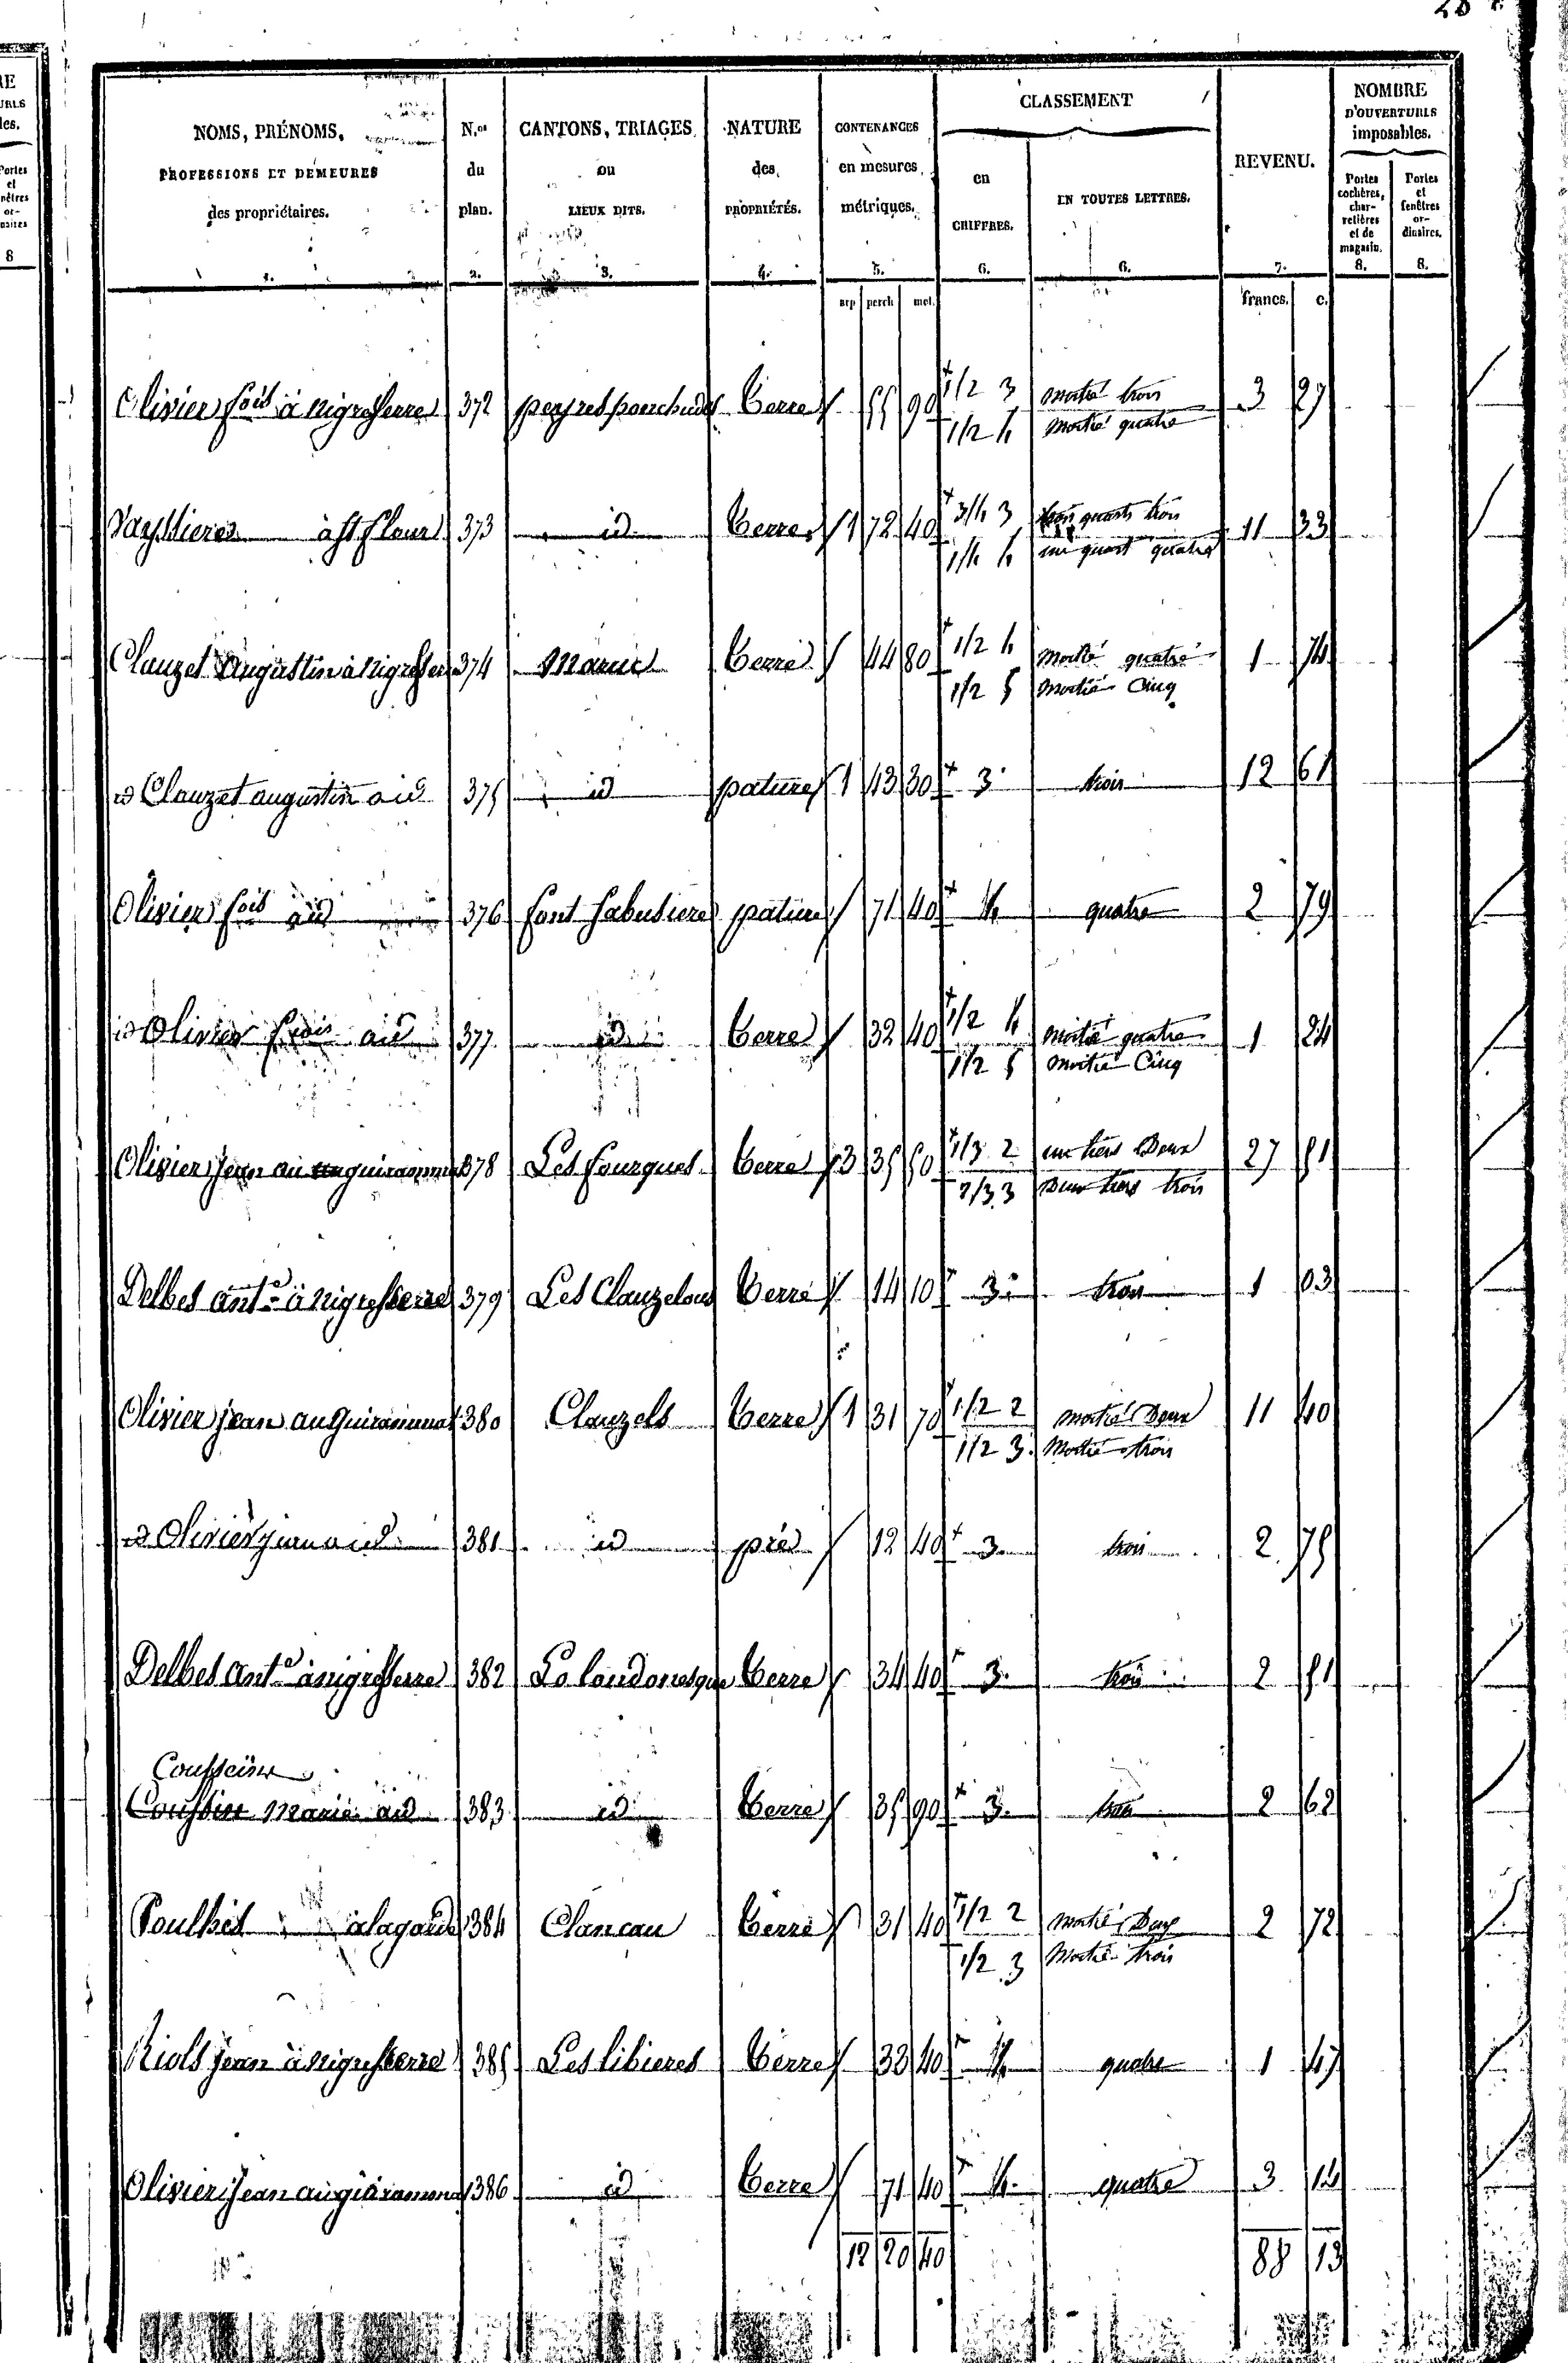 NOMS, PRÉNOMS, PROFESSIONS ET DEMEURES des propriétaires. 1.
N.os du plan. 2.
CANTONS, TRIAGES ou LIEUX DITS. 3.
NATURE des PROPRIÉTÉS. 4.
CONTENANCES en mesures métriques. 5.
CLASSEMENT
en CHIFFRES. 6.
EN TOUTES LETTRES. 6.
REVENU. 7.
NOMBRE D'OUVERTURES imposables.
Portes cochères, charretières et de magasin. 8.
Portes et fenêtres ordinaires. 8.
arp perch met. francs. c.
Olivier fois à nigresserre 372 peyres ponchudes Terre 55 90 1/2 3 moitié trois 3 27
1/2 4 moitié quatre
à St flour 373 id Terre 1 72 40 3/4 3 trois quarts trois 11 33
1/4 4 un quart quatre
Clauzet Augustin à nigresserre 374 Terre 44 80 1/2 4 moitié quatre 1 74
1/2 5 moitié Cinq
id Clauzet augustin a id 375 id pature 1 43 30 3 trois 12 61
Olivier fois a id 376 font pature 71 40 4 quatre 2 79
id Olivier frois a id 377 id Terre 32 40 1/2 4 moitié quatre 1 24
1/2 5 moitié Cinq
Olivier Jean au 378 Les fourques Terre 3 35 50 1/3 2 un tiers Deux 27 51
2/3 3 Deux tiers trois
Delbes ant.e à nigresserre 379 Les Clauzelous Terre 14 10 3 trois 1 03
Olivier jean au 380 Clauzels Terre 1 31 70 1/2 2 moitié Deux 11 40
1/2 3 moitié trois
id Olivier jean a id 381 id pré 12 40 3 trois 2 75
Delbes ant.e à nigresserre 382 La Terre 34 40 3 trois 2 51
Marie a id 383 id Terre 35 90 3 trois 2 62
Poulhès 384 Clancau Terre 31 40 1/2 2 moitié Deux 2 72
1/2 3 moitié trois
Riols jean à nigresserre 385 Les libieres Terre 33 40 4 quatre 1 47
Olivier Jean au 386 id Terre 71 40 4 quatre 3 14
12 20 40 88 13